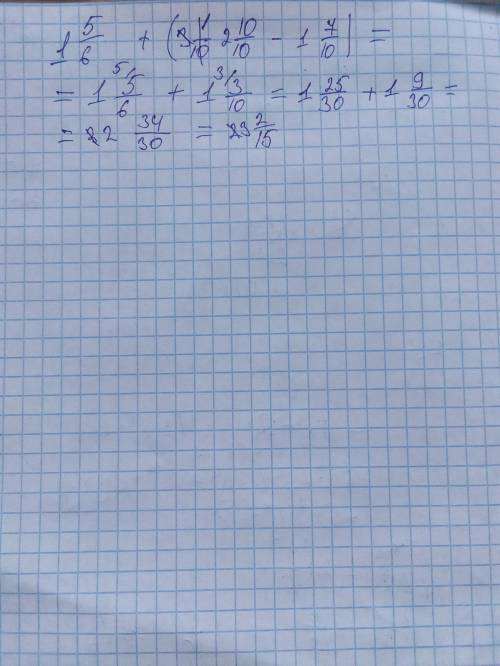 1 5/6 + (2 10/10 - 1 7/10) =
= 1 5/6 + 1 3/10 = 1 25/30 + 1 9/30 =
= 2 34/30 = 3 2/15